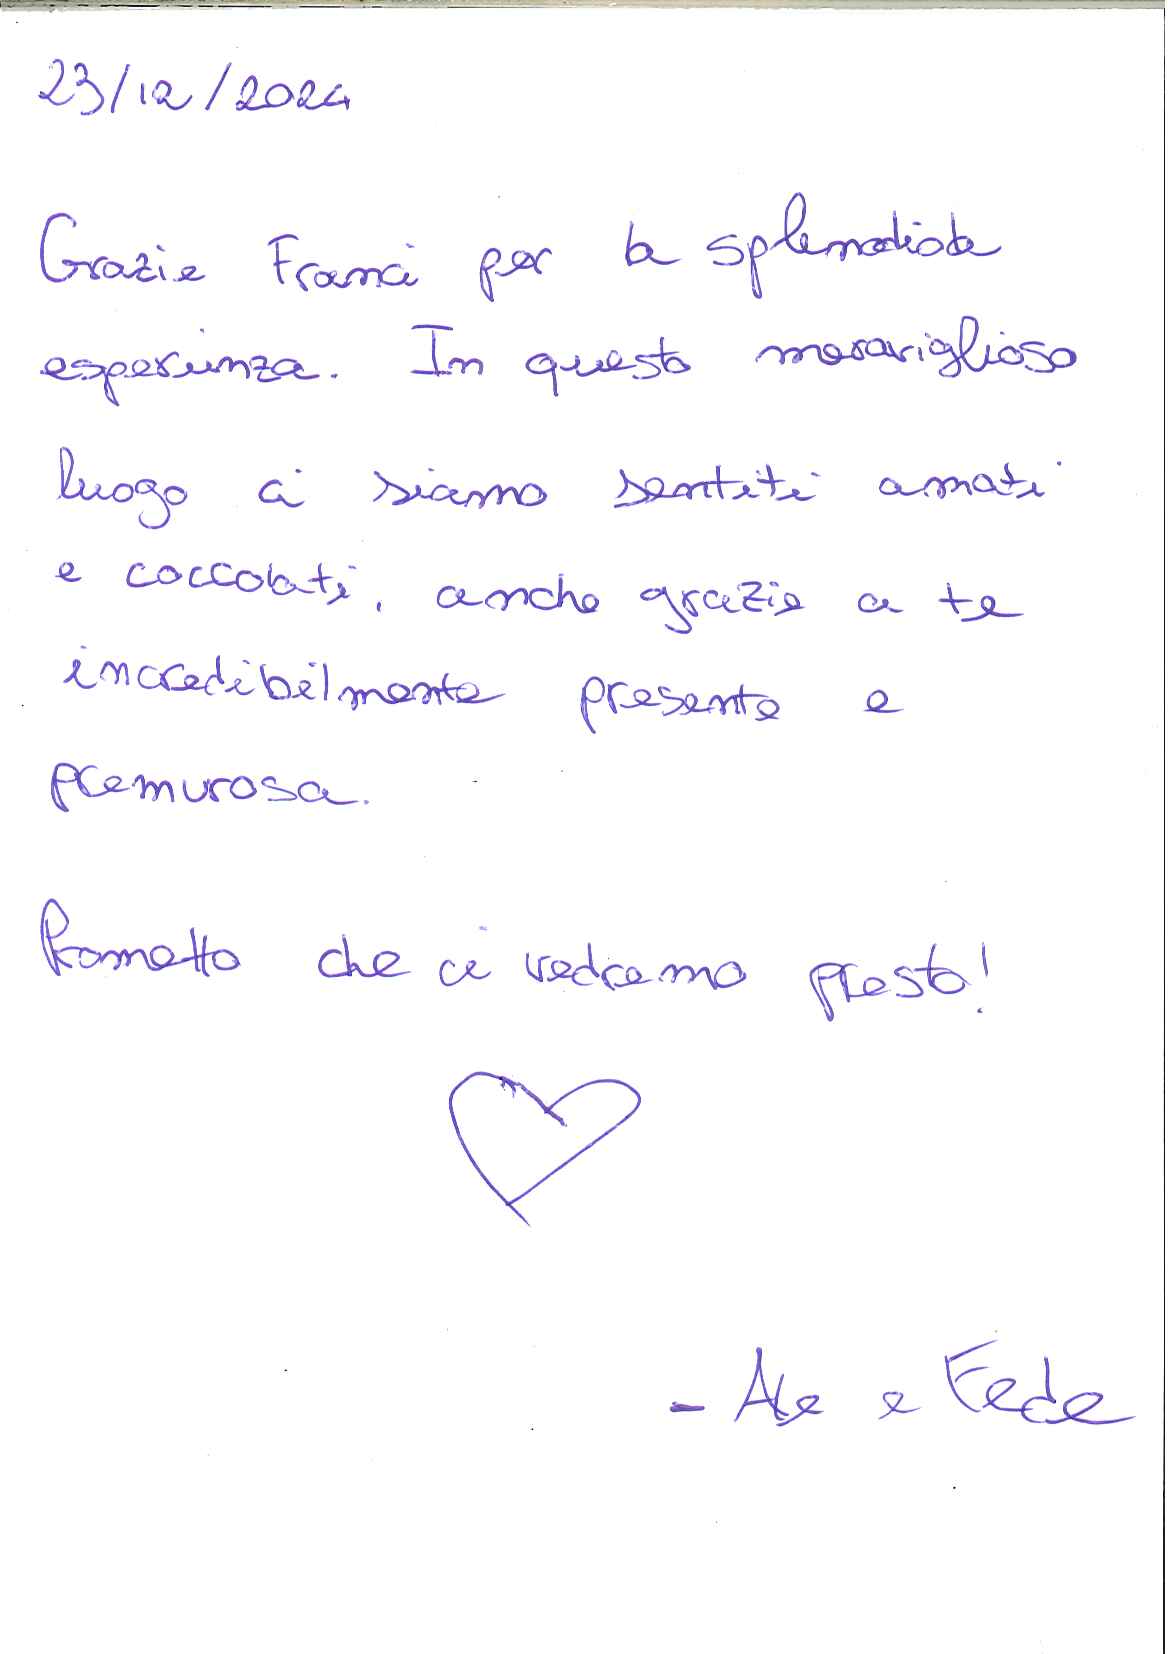 23/12/2024
Grazie Franci per la splendida
esperienza. In questo meraviglioso
luogo ci siamo sentiti amati
e coccolati, anche grazie a te
incredibilmente presente e
premurosa.
Prometto che ci vedremo presto!
- Ale e Fede